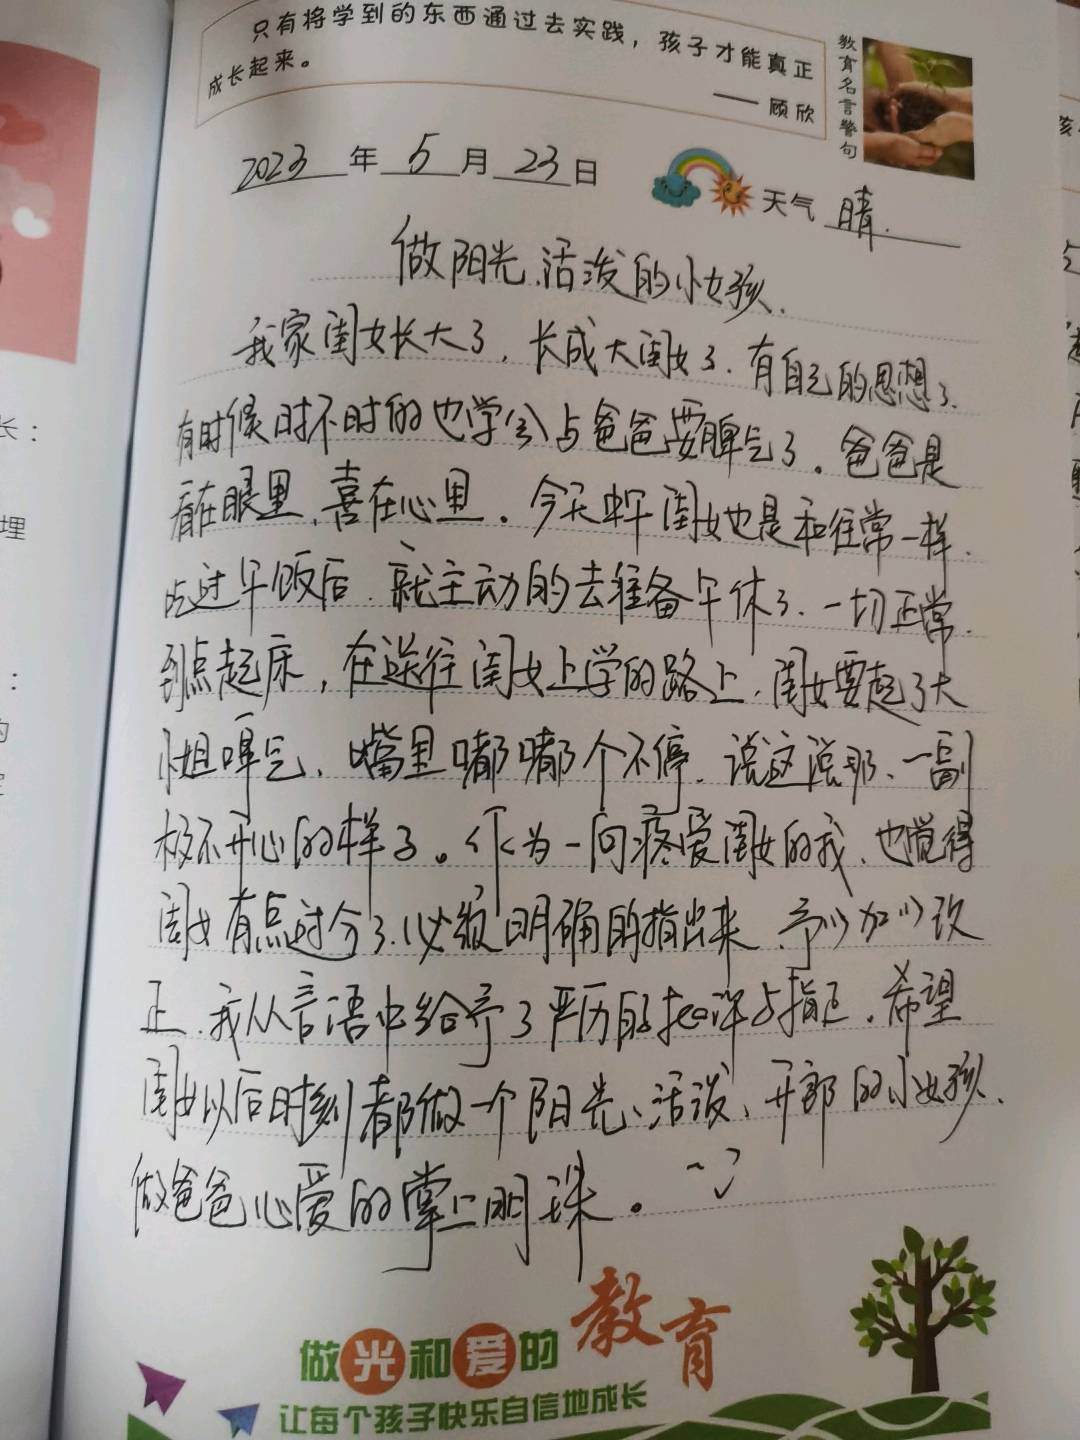 只有将学到的东西通过去实践，孩子才能真正
成长起来。
—— 顾欣
教育名言警句
2023 年 5 月 23 日
天气 晴.
做阳光、活泼的小女孩.
我家闺女长大了，长成大闺女了.有自己的思想了.
有时候时不时的也学会与爸爸耍脾气了。爸爸是
看在眼里、喜在心里。今天中午闺女也是和往常一样.
吃过午饭后.就主动的去准备午休了.一切正常.
到点起床，在送往闺女上学的路上.闺女耍起了大
小姐脾气、嘴里嘟嘟个不停.说这说那、一副
极不开心的样子。作为一向疼爱闺女的我.也觉得
闺女有点过分了.必须明确的指出来.予以加以改
正.我从言语中给予了严历的批评与指正.希望
闺女以后时刻都做一个阳光、活泼、开朗的小女孩.
做爸爸心爱的掌上明珠。
做光和爱的教育
让每个孩子快乐自信地成长
长：
理
：
的